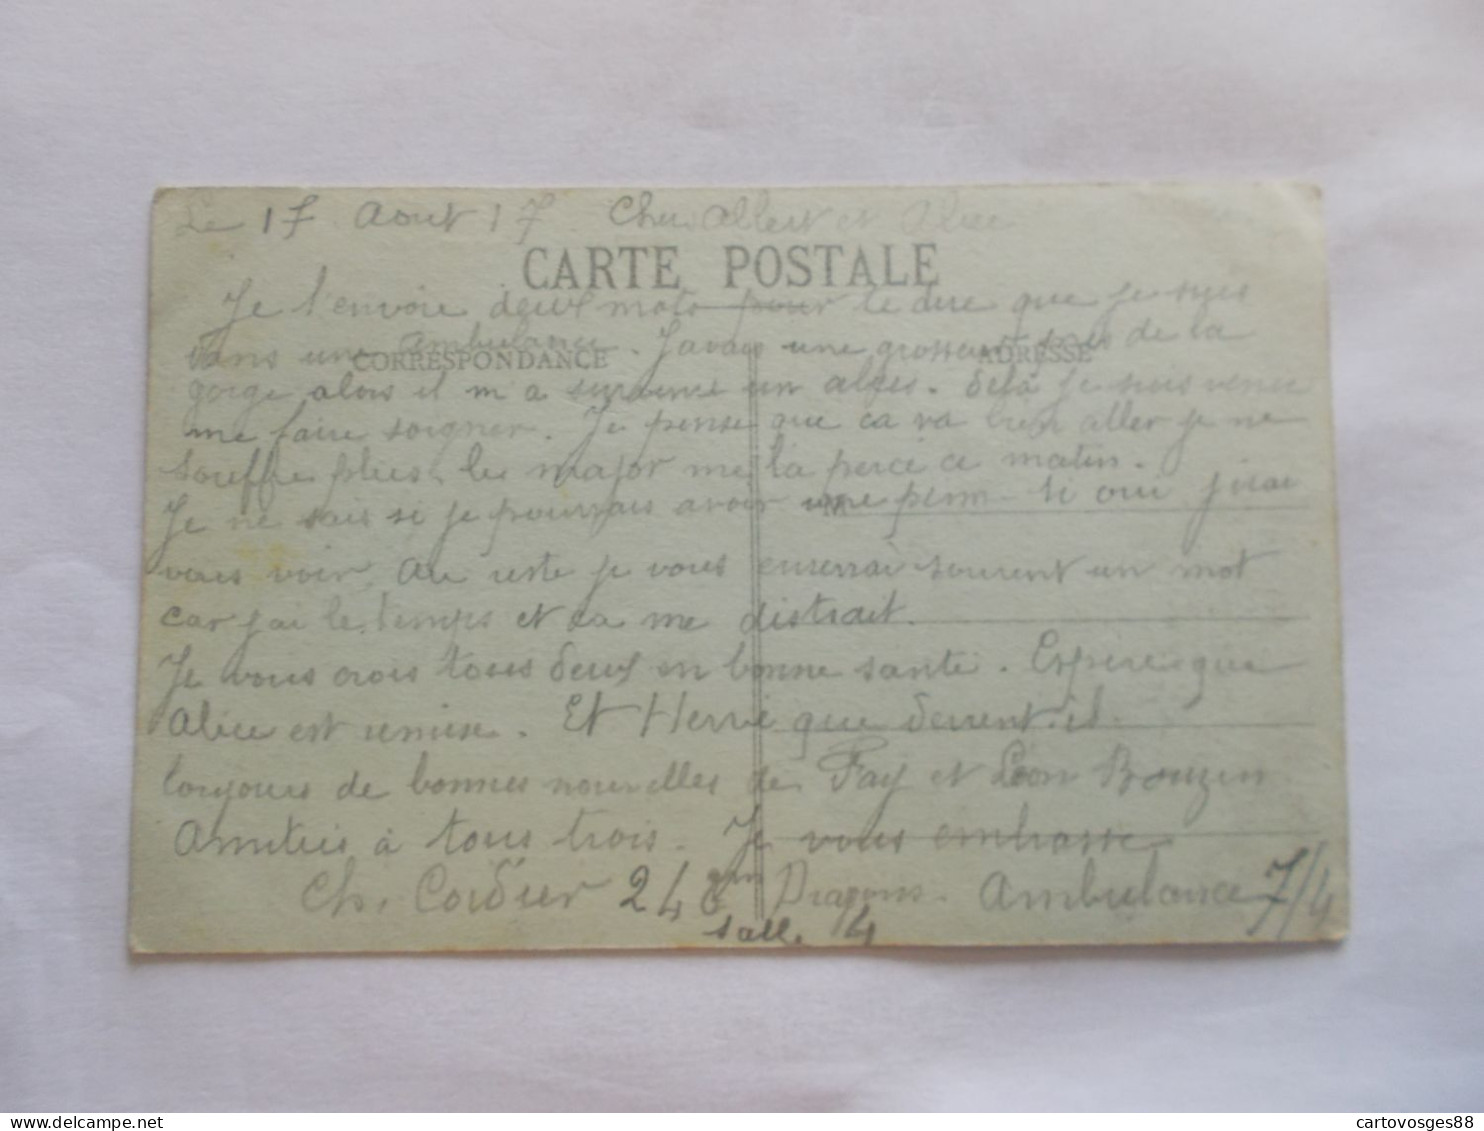 Le 17 Aout 17 Cher Albert et Alice
CARTE POSTALE
Je t'envoie deux mots pour te dire que je suis
dans une ambulance. J'avais une grosseur pres de la
CORRESPONDANCE ADRESSE
gorge alors il m a survenue un abcès. Déjà je suis venue
me faire soigner. Je pense que ca va bien aller je ne
souffre plus, le major me la percé ce matin.
Je ne sais si je pourrais avoir une perm - si oui j'irai
vous voir. Au reste je vous enverrai souvent un mot
car j'ai le temps et ca me distrait.
Je vous crois tous deux en bonne santé. Espère que
Alice est remise. Et Hervé que devient-il.
toujours de bonnes nouvelles de Fay et Léon Bouzin
Amitiés à tous trois. Je vous embrasse
Ch. Cordier 24 Dragons. Ambulance 7/4
Salle 4
cartovosges88